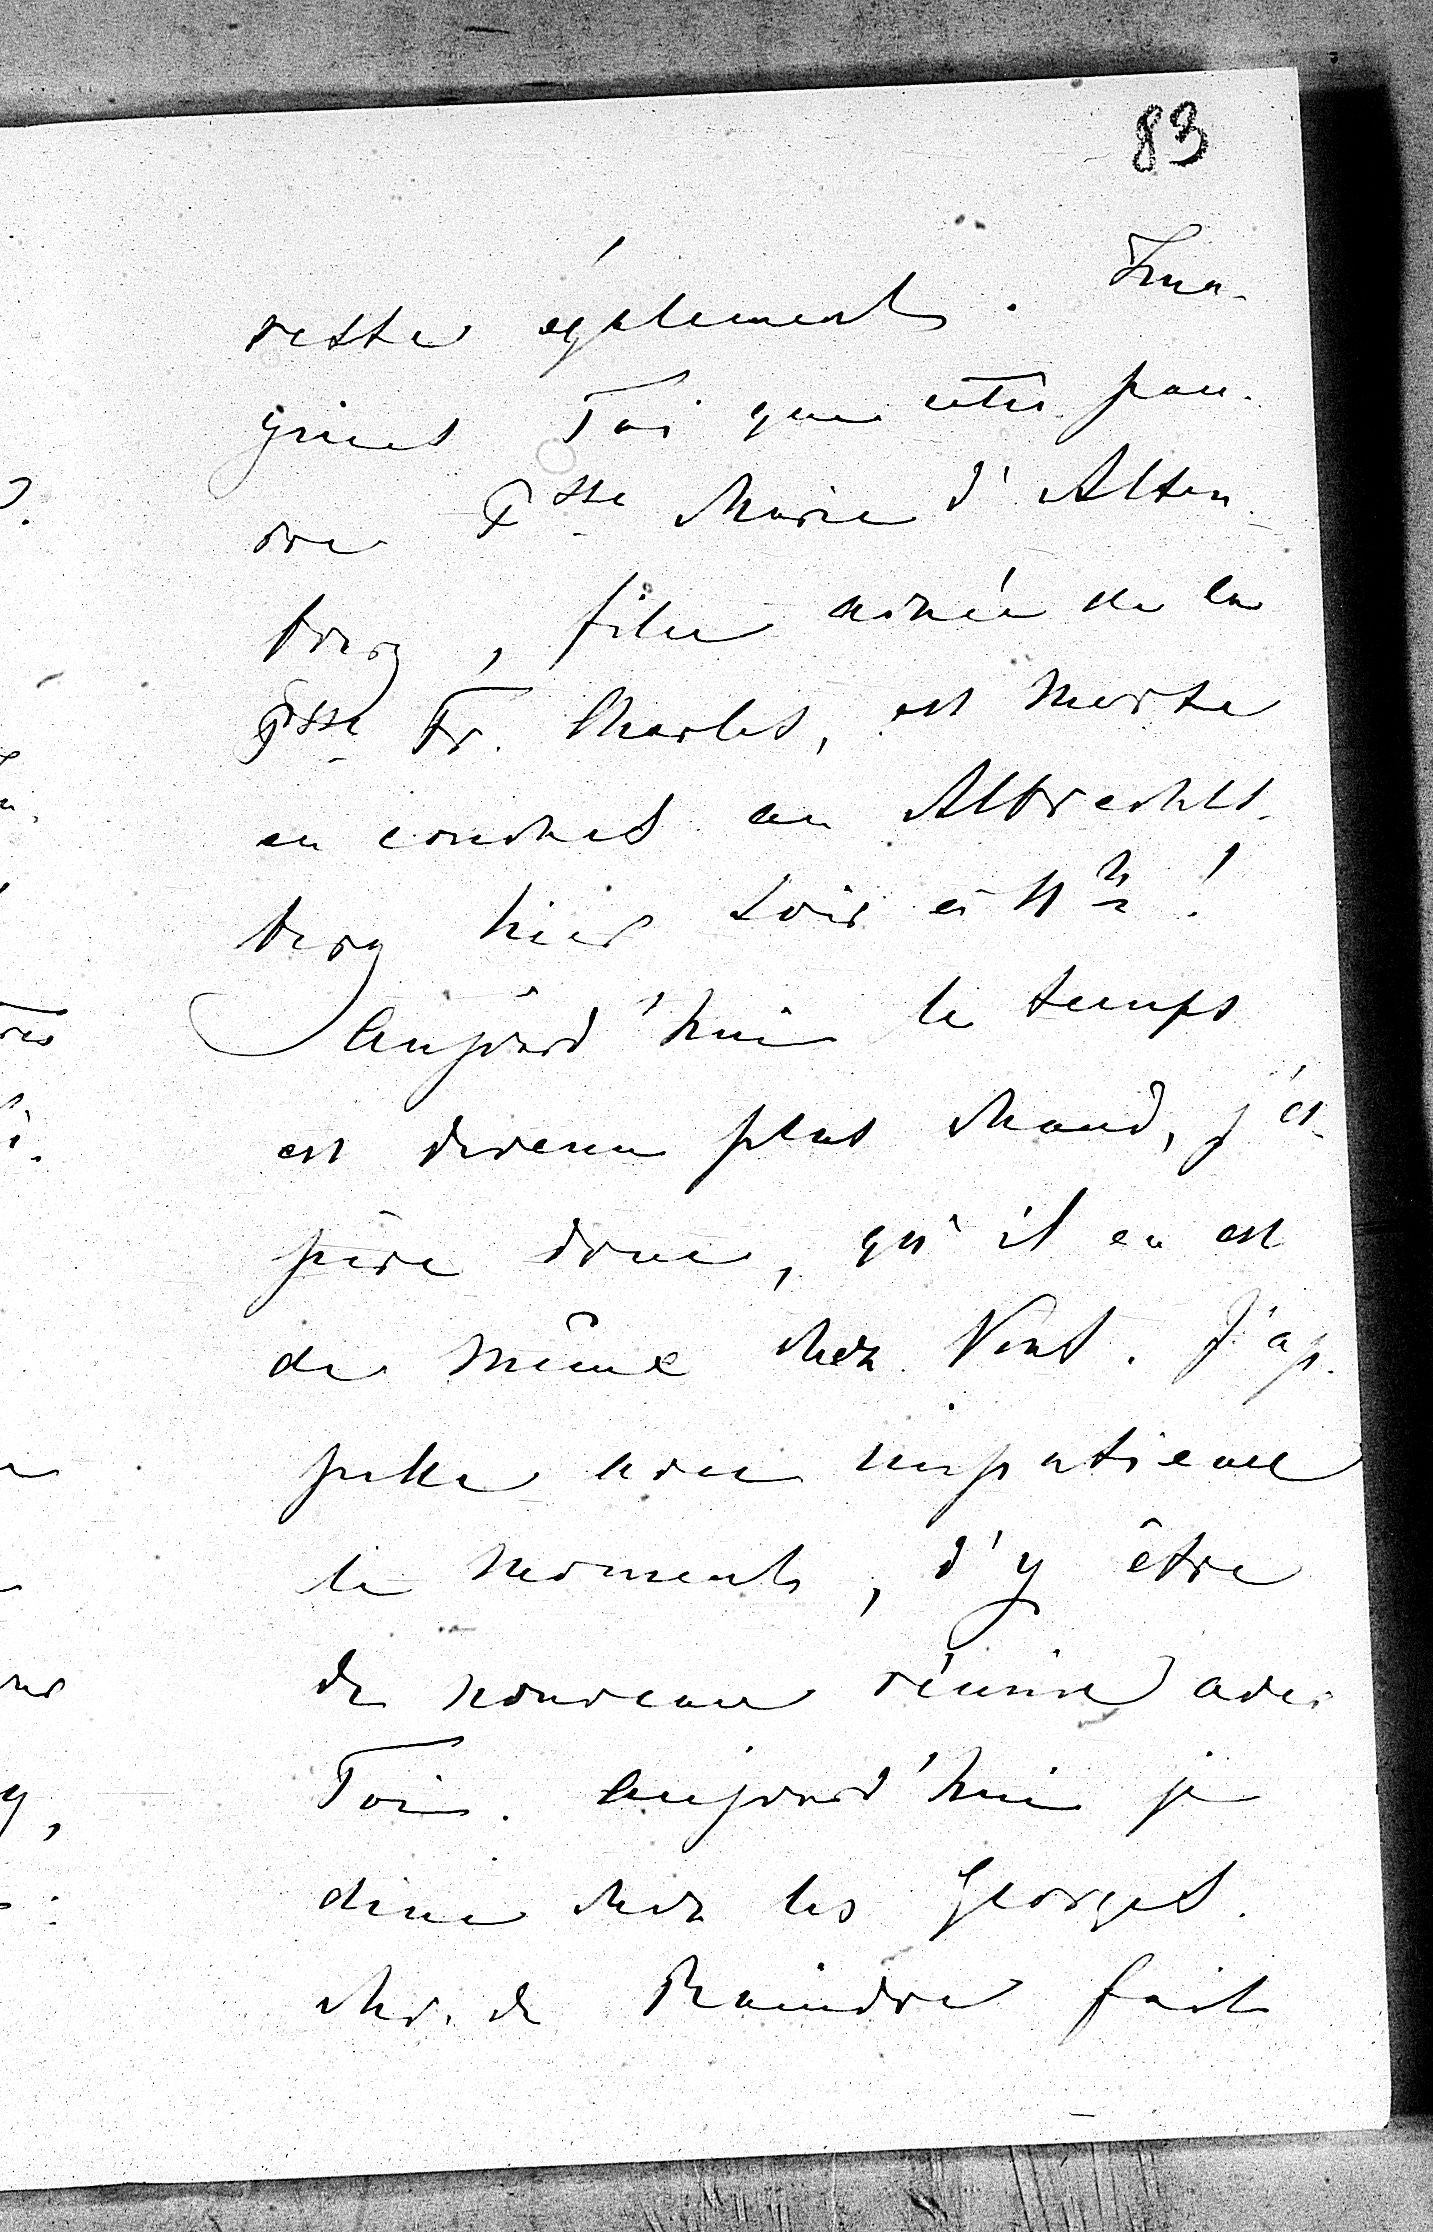 83
reste également. Ima-
gines Toi que cette pau-
vre Psse Marie d'Alten-
burg, fille ainée de la
Psse Fr. Charles, est morte
en couches au Albrechts-
berg hier soir à 11 h!
Aujourd'hui le temps
est devenu plus chaud, j'es-
père donc, qu'il en est
de même chez Vous. J'ap-
pelle avec impatience
le moment, d'y être
de nouveau réunie avec
Toi. Aujourd'hui je
dine chez les Georges.
Mr. de Raindre fait